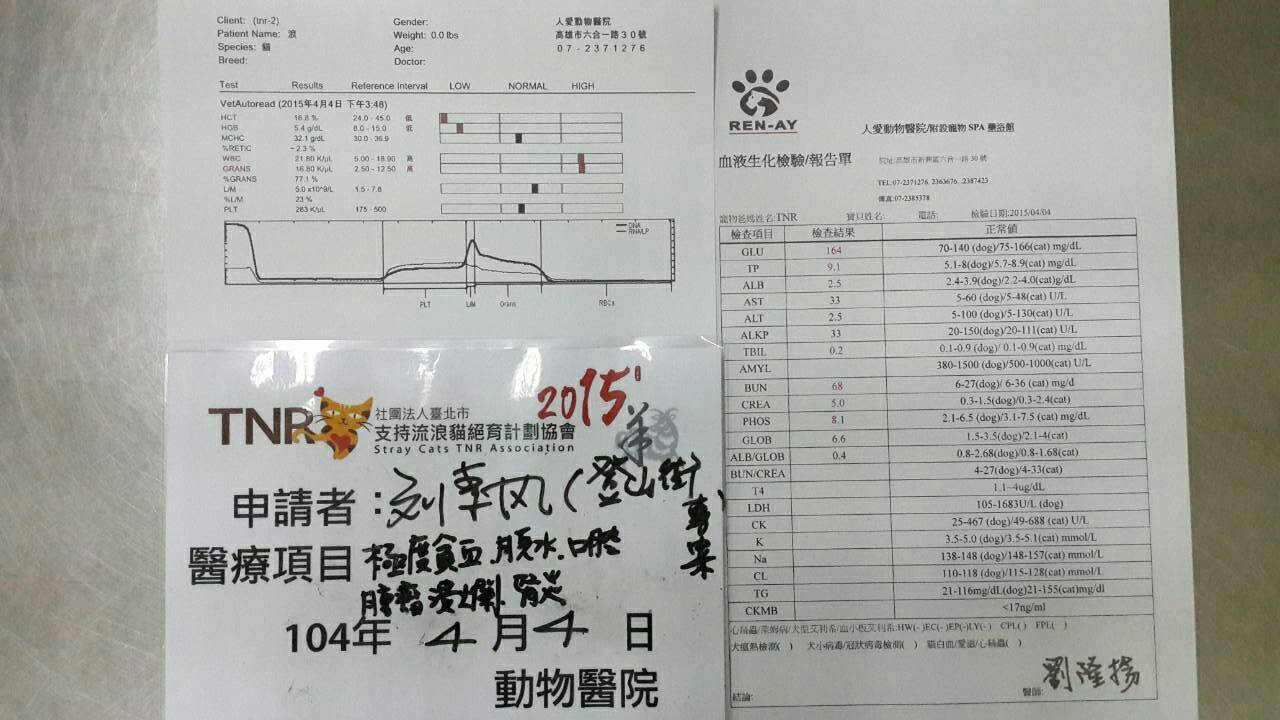 Client: (tnr-2)
Gender:
人愛動物醫院
Patient Name: 浪
Weight: 0.0 lbs
高雄市六合一路30號
Species: 貓
Age:
07-2371276
Breed:
Doctor:
Test Results Reference Interval LOW NORMAL HIGH
VetAutoread (2015年4月4日 下午3:48)
HCT 16.8 % 24.0 - 45.0 低
HGB 5.4 g/dL 8.0 - 15.0 低
MCHC 32.1 g/dL 30.0 - 36.9
%RETIC ~ 2.3 %
WBC 21.80 K/µL 5.00 - 18.90 高
GRANS 16.80 K/µL 2.50 - 12.50 高
%GRANS 77.1 %
L/M 5.0 x10^9/L 1.5 - 7.8
%L/M 23 %
PLT 283 K/µL 175 - 500
DNA
RNA/LP
PLT L/M Grans RBCs
2015
TNR
社團法人臺北市
支持流浪貓絕育計劃協會
Stray Cats TNR Association
羊
申請者:刘聿风(登山街專案)
醫療項目 極度貧血.腹水.口腔
腫瘤潰爛.腎炎
104年 4月4日
動物醫院
REN-AY
人愛動物醫院/附設寵物 SPA 藥浴館
血液生化檢驗/報告單
院址:高雄市新興區六合一路 30 號
TEL:07-2371276. 2363676. .2387423
傳真:07-2385378
寵物爸媽姓名:TNR 寶貝姓名: 電話: 檢驗日期:2015/04/04
檢查項目 檢查結果 正常値
GLU 164 70-140 (dog)/75-166(cat) mg/dL
TP 9.1 5.1-8(dog)/5.7-8.9(cat) mg/dL
ALB 2.5 2.4-3.9(dog)/2.2-4.0(cat)g/dL
AST 33 5-60 (dog)/5-48(cat) U/L
ALT 2.5 5-100 (dog)/5-130(cat) U/L
ALKP 33 20-150(dog)/20-111(cat) U/L
TBIL 0.2 0.1-0.9 (dog)/ 0.1-0.9(cat) mg/dL
AMYL 380-1500 (dog)/500-1000(cat) U/L
BUN 68 6-27(dog)/ 6-36 (cat) mg/d
CREA 5.0 0.3-1.5(dog)/0.3-2.4(cat)
PHOS 8.1 2.1-6.5 (dog)/3.1-7.5 (cat) mg/dL
GLOB 6.6 1.5-3.5(dog)/2.1-4(cat)
ALB/GLOB 0.4 0.8-2.68(dog)/0.8-1.68(cat)
BUN/CREA 4-27(dog)/4-33(cat)
T4 1.1~4ug/dL
LDH 105-1683U/L (dog)
CK 25-467 (dog)/49-688 (cat) U/L
K 3.5-5.0 (dog)/3.5-5.1(cat) mmol/L
Na 138-148 (dog)/148-157(cat) mmol/L
CL 110-118 (dog)/115-128(cat) mmol/L
TG 21-116mg/dL(dog)21-155(cat)mg/dl
CKMB <17ng/ml
心絲蟲/萊姆病/犬型艾利希/血小板艾利希:HW(- )EC(- )EP(-)LY(- ) CPL( ) FPL( )
犬瘟熱檢測( ) 犬小病毒/冠狀病毒檢測( ) 貓白血/愛滋/心絲蟲( )
結論:
醫師: 劉隆揚